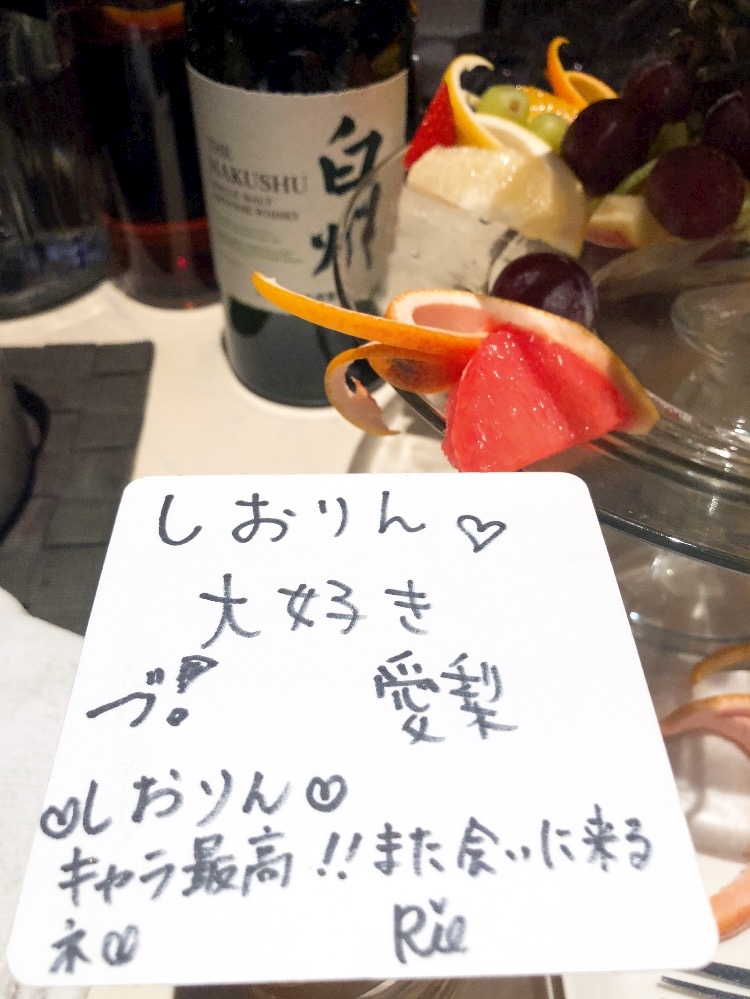 THE
HAKUSHU
SINGLE MALT
JAPANESE WHISKY
白州
しおりん♡
大好き
づ! 愛梨
♡しおりん♡
キャラ最高!!また会いに来る
ネ
Rie